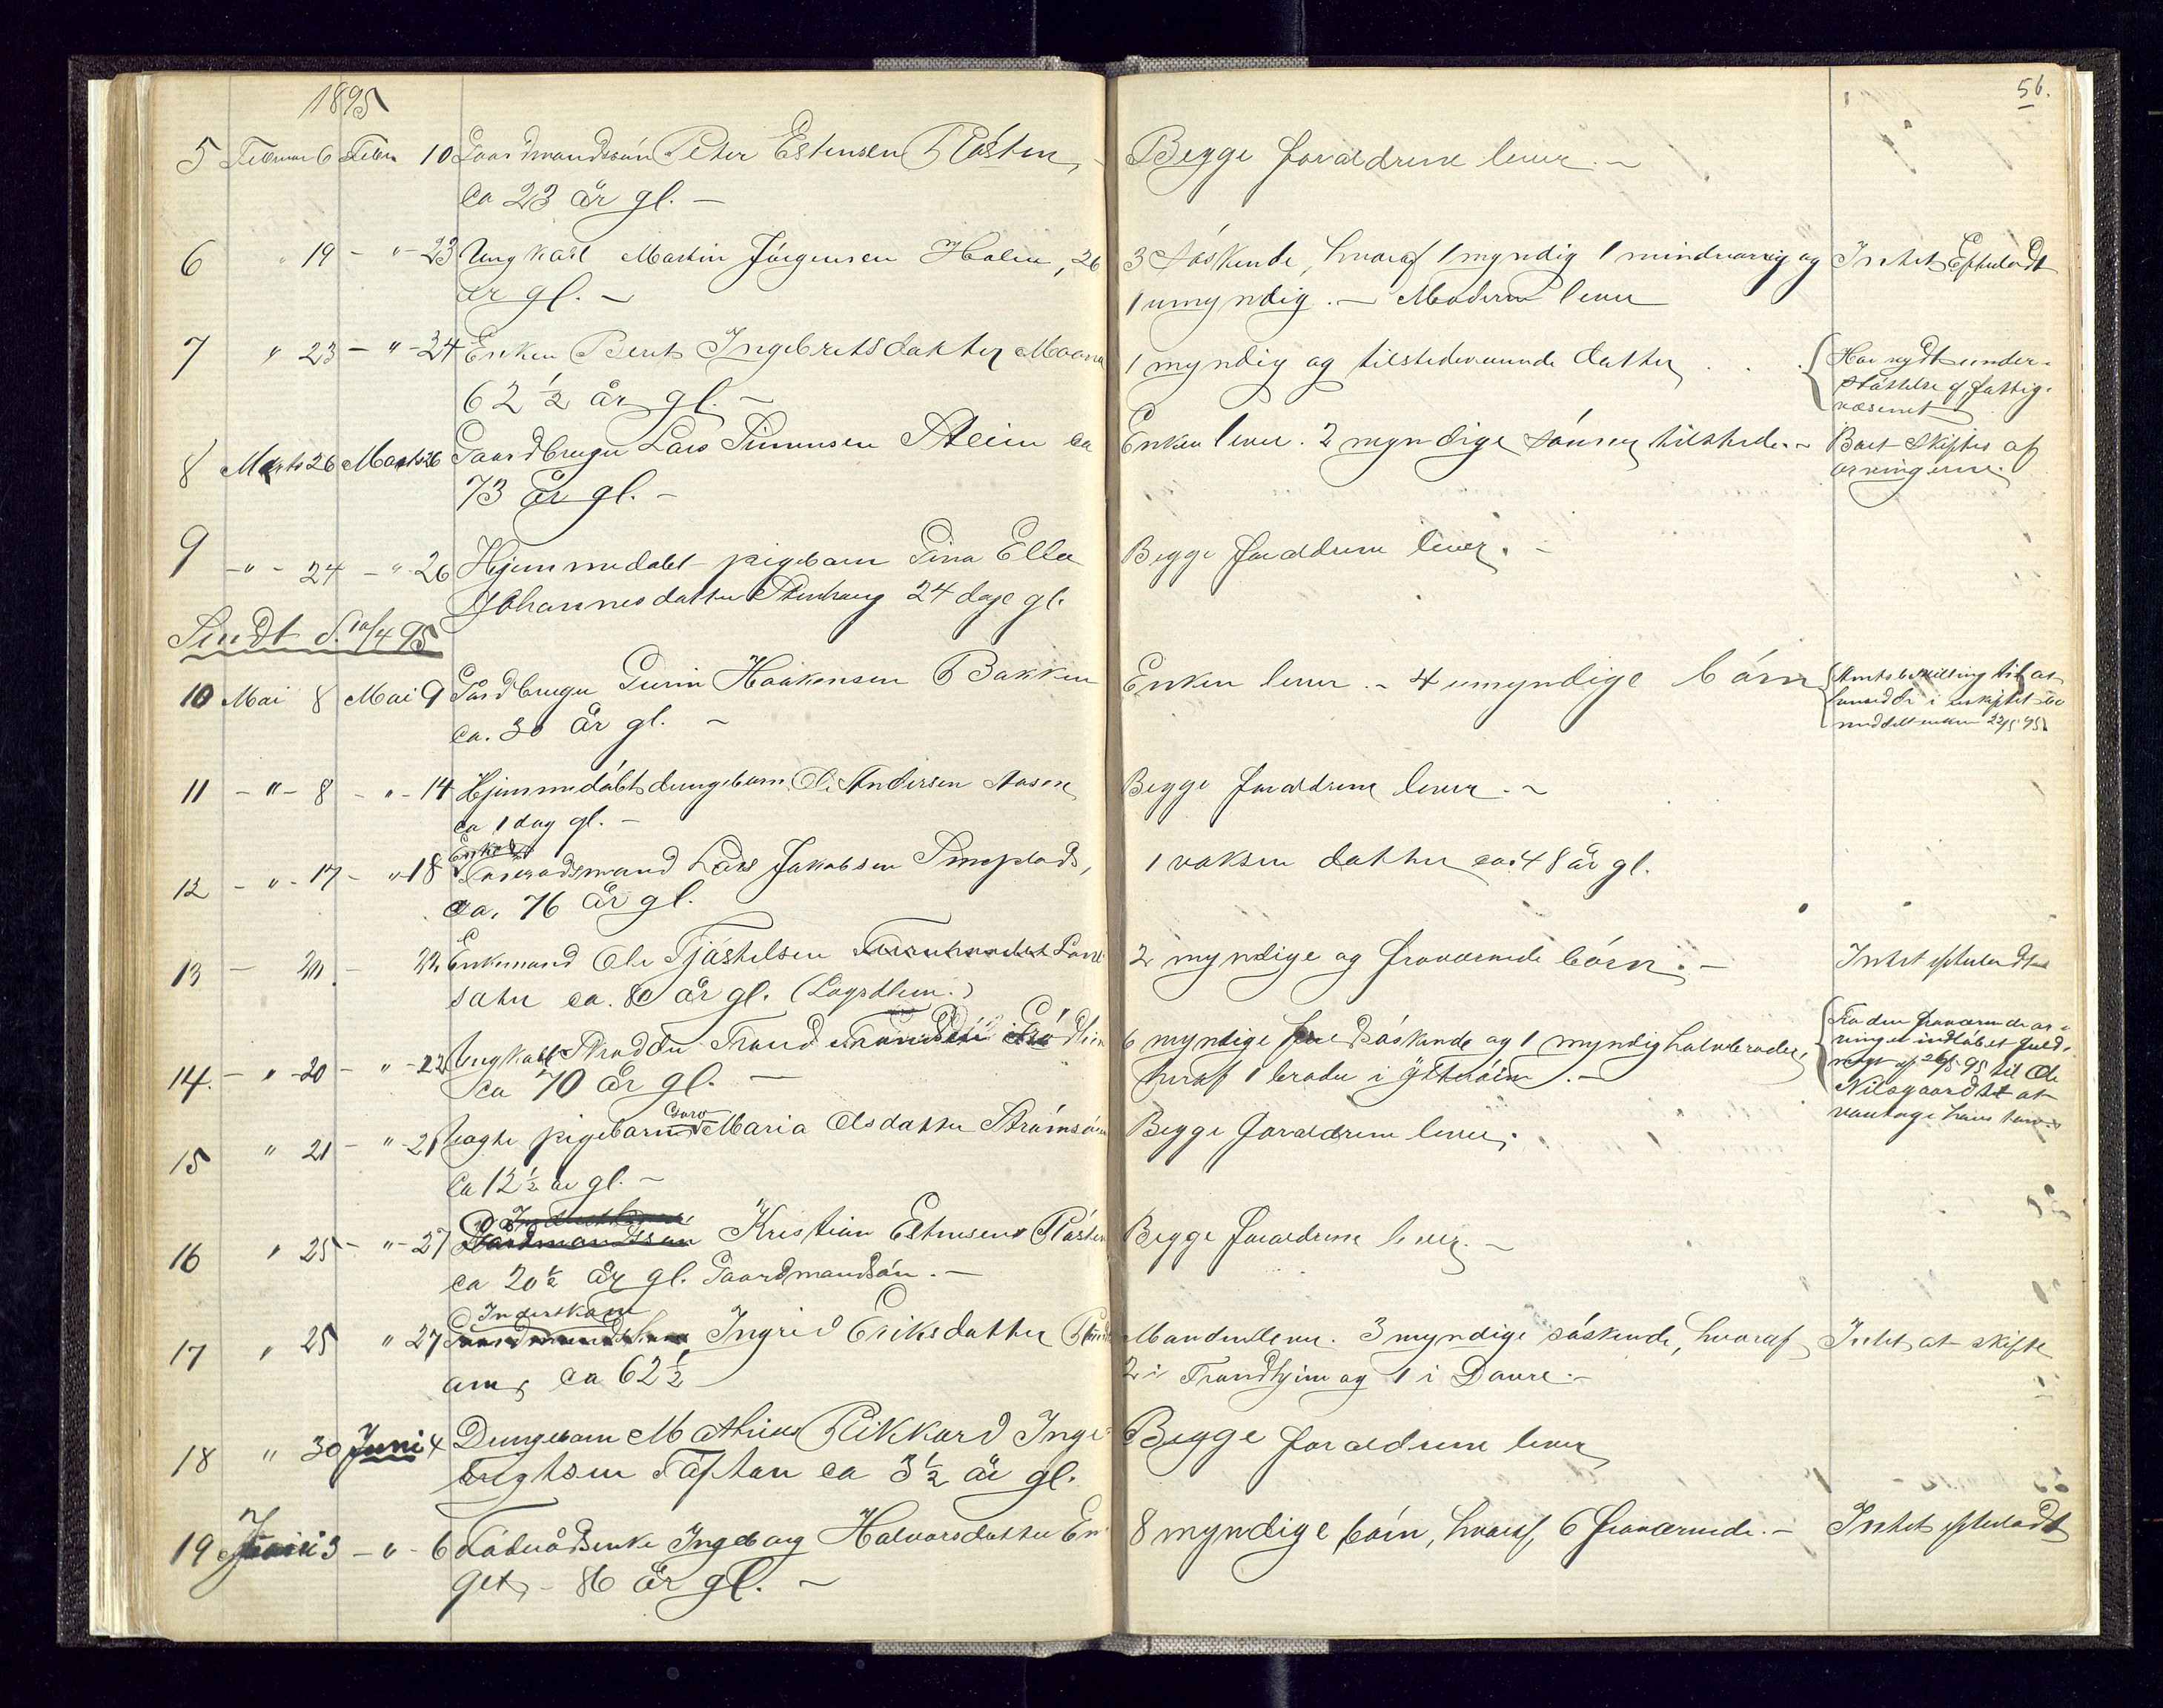 1895
56.
5 Februar 6 Febr 10 Gaardmandssön Peter Estensen Rösten, Begge forældrene lever. -
ca 23 år gl. -
6 " 19 - " - 23 Ungkarl Martin Jörgensen Holen, 26 3 söskende, hvoraf 1 myndig 1 mindreaarig og Intet Efterladt
år gl. - 1 umyndig. - Moderen lever
7 " 23 - " - 24 Enken Berit Ingebrigtsdatter Moan 1 myndig og tilstedeværende datter . . . Har nydt under-
62 1/2 år gl. - støttelse af fattig-
væsenet
8 Marts 26 Marts 26 Gaardbruger Lars Simensen Steien ca Enken lever. 2 myndige sönner tilstede. - Boet skiftes af
73 år gl. - arvingerne.
9 - " - 24 - " - 26 Hjemmedøbt pigebarn Gina Ella Begge forældrene lever. -
Johannesdatter Stenhaug 24 dage gl.
Sendt d. 10/4 95
10 Mai 8 Mai 9 Gårdbruger Haakensen Bakken Enken lever. - 4 umyndige börn
ca. 30 år gl. - i uskiftet bo
meddelt enken 22/5 95
11 - " - 8 - " - 14 Hjemmedöbt drengebarn Ole Andersen Aasen Begge forældrene lever. -
ca 1 dag gl. -
12 - " - 17 - " - 18 Lars Jakobsen 1 voksen datter ca. 48 år gl.
ca. 76 år gl.
13 - 20 - 22 Enkemand Ole Tjöstelsen 2 myndige og fraværende börn. - Intet efterladt
ca. 80 år gl. (Lægdslem.)
14. - " - 20 - " - 22 Ungkarl Skrædder Trond 6 myndige söskende og 1 myndig halvbroder, Fra den fraværende ar-
ca 70 år gl. - heraf 1 broder i Österdalen. - vinger indlöbet fuld-
magt af 26/5 95 til Ole
Nilsgaard at
varetage hans tarv.
15 " 21 - " - 21 pigebarn Maria Olsdatter Begge forældrene lever.
ca 12 1/2 år gl. -
16 " 25 - " - 27 Kristian Estensen Rösten Begge forældrene lever. -
ca 20 1/2 år gl. Gaardmandsön. -
Inderstkone
17 " 25 " 27 Ingrid Eriksdatter Manden lever. 3 myndige söskende, hvoraf Intet at skifte
ca 62 1/2 2 i Trondhjem og 1 i Dovre. -
18 " 30 Juni 4 Drengebarn Mathias Rikkard Inge- Begge forældrene lever
brigtsen Töftan ca 3 1/2 år gl.
19 Juni 3 - " - 6 Föderådsenke Ingeborg Halvorsdatter En- 8 myndige börn, hvoraf 6 fraværende. - Intet efterladt
get, - 86 år gl. -